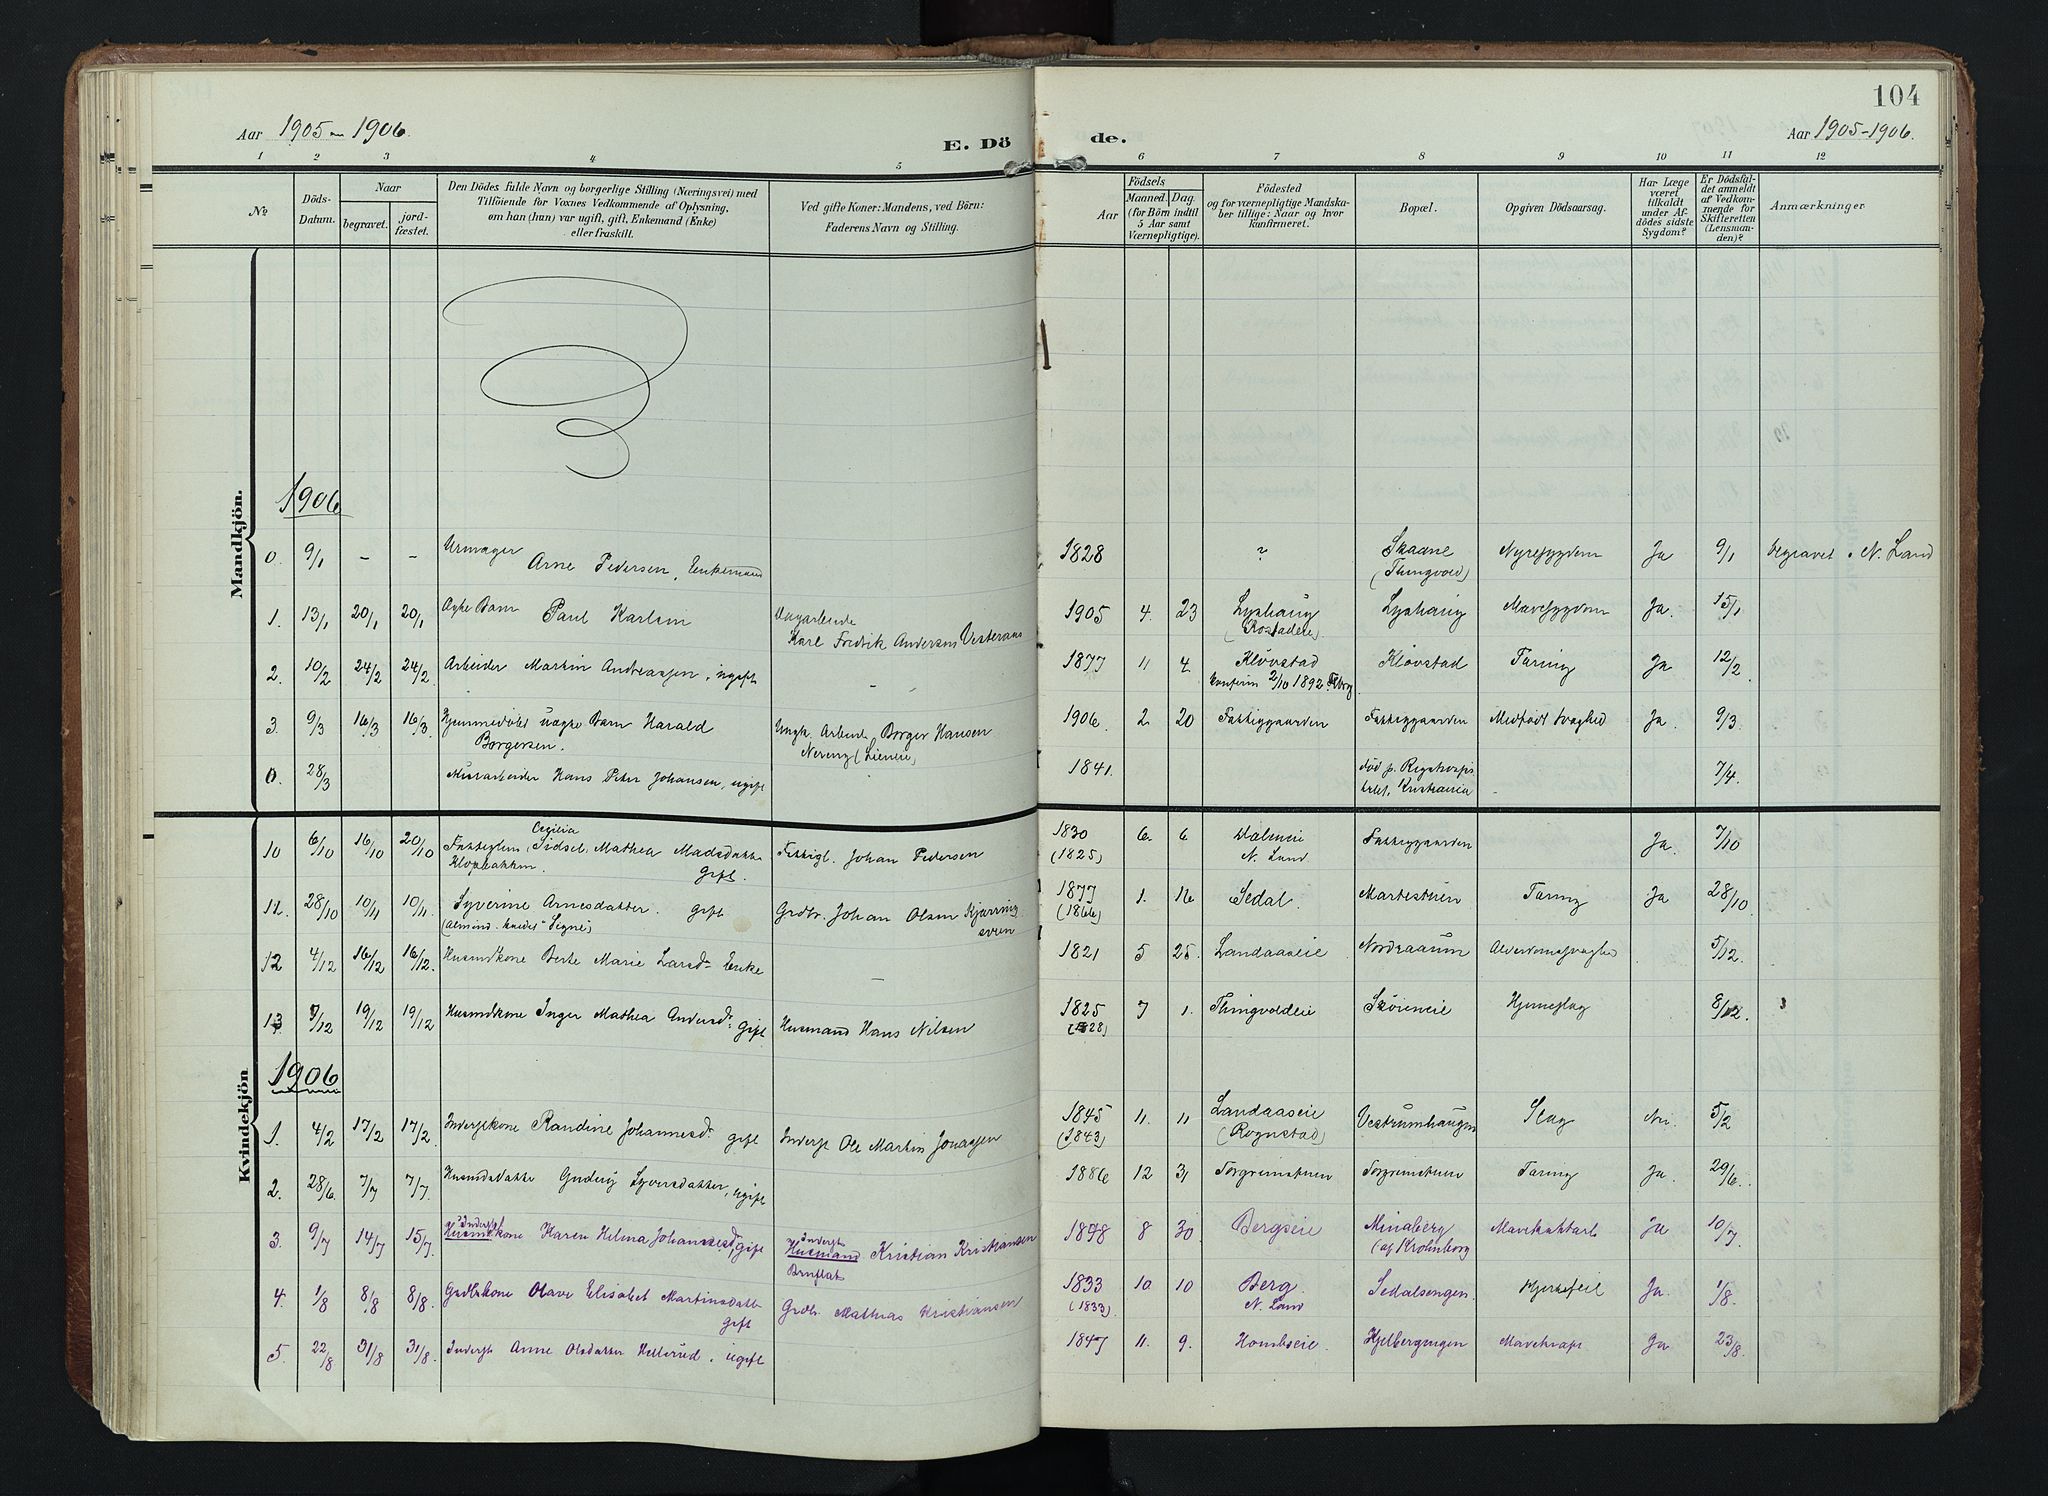 104
Aar 1905-1906.
E. Dö de.
Aar 1905-1906.
1 2 3 4 5 6 7 8 9 10 11 12
No.
Döds-Datum.
Naar
begravet.
jord-fæstet.
Den Dödes fulde Navn og borgerlige Stilling (Næringsvei) med
Tilföiende for Voxnes Vedkommende af Oplysning,
om han (hun) var ugift, gift, Enkemand (Enke)
eller fraskilt.
Ved gifte Koner: Mandens, ved Börn:
Faderens Navn og Stilling.
Aar
Födsels
Maaned. Dag.
(for Börn indtil
5 Aar samt
Værnepligtige).
Födested
og for værnepligtige Mandska-
ber tillige: Naar og hvor
konfirmeret.
Bopæl.
Opgiven Dödsaarsag.
Har Læge
været
tilkaldt
under Af-
dödes sidste
Sygdom?
Er Dödsfal-
det anmeldt
af Vedkom-
mende for
Skifteretten
(Lensman-
den)?
Anmærkninger
Mandkjön.
1906
0. 9/1 - - Urmager Arne Pedersen, Enkemand 1828 ? Skaane (Thingvold) Nyresygdom Ja 9/1 begravet i N. Land
1. 13/1 20/1 20/1 Ægte Barn Paul Karlsen
Karl Fredrik Andersen Vesteraas 1905 4. 23 Lyshaug Lyshaug Mavesygdom Ja. 15/1
2. 10/2 24/2 24/2. Arbeider Martin Andreassen, ugift - 1877 11 4. Klövstad Klövstad Tæring Ja 12/2
konfirm 2/10 1892
3. 9/3 16/3 16/3. Hjemmedöbt uægte Barn Harald Borgersen. Ungk. Arbeider Borger Hansen 1906 2. 20 Fattiggaarden Fattiggaarden Medfödt Svaghed Ja. 9/3
0. 28/3 Murarbeider Hans Peter Johansen, ugift 1841. död p. Rigshospitalet, Kristiania 7/4.
Kvindekjön
10 6/10 16/10 20/10 Cecilia
Sidsel Mathea Madsdatter gift. Johan Pedersen 1830 (1825) 6. 6 N. Land Fattiggaarden Ja. 7/10
11. 28/10 10/11 10/11. Syverine Arnesdatter. gift Grdbr. Johan Olsen 1877 (1866) 1. 16 Sedal. Tæring Ja 28/10.
(almind. kaldet "Signe")
12 4/12 16/12 16/12. Husmdkone Berte Marie Larsd. Enke - 1821 5 25. Landaaseie Nordraaum Alderdomssvaghed 5/12.
13 7/12 19/12 19/12 Husmdkone Inger Mathea Andersd. gift Husmand Hans Nilsen 1825 7 1. Thingvoldeie Sköieneie Hjerneslag 8/12.
1906
1. 4/2 17/2 17/2. Inderstkone Randine Johannesd. gift Inderst Ole Martin Jonassen 1845 (1843) 11. 11 Landaaseie (Rognstad) Vestrumhaugen Slag Nei. 5/2
2. 28/6 7/7 7/7. Husmdsdatter Gudrun Syversdatter, ugift 1886 12 31 Torgrimstuen Torgrimstuen Tæring Ja. 29/6.
3. 9/7 14/7 15/7. Inderst
Husmdkone Karen Helina Johannesd, gift Inderst
Husmand Kristian Kristiansen
Bruflat 1878 8 30 Bergseie Minaberg (af Krohnborg Mavekatarh Ja 10/7.
4. 1/8 8/8 8/8. Grdbrkone Olave Elisabet Martinsdatter gift Grdbr. Mathias Kristiansen 1833 (1833) 10. 10 Berg. N. Land Sedalsengen. Hjertefeil Ja. 1/8.
5. 22/8 31/8 31/8. Inderst Anne Olsdatter Hellerud. ugift 1847 11. 9. Hombseie. Hjelbergengen Mavekræft Ja 23/8.